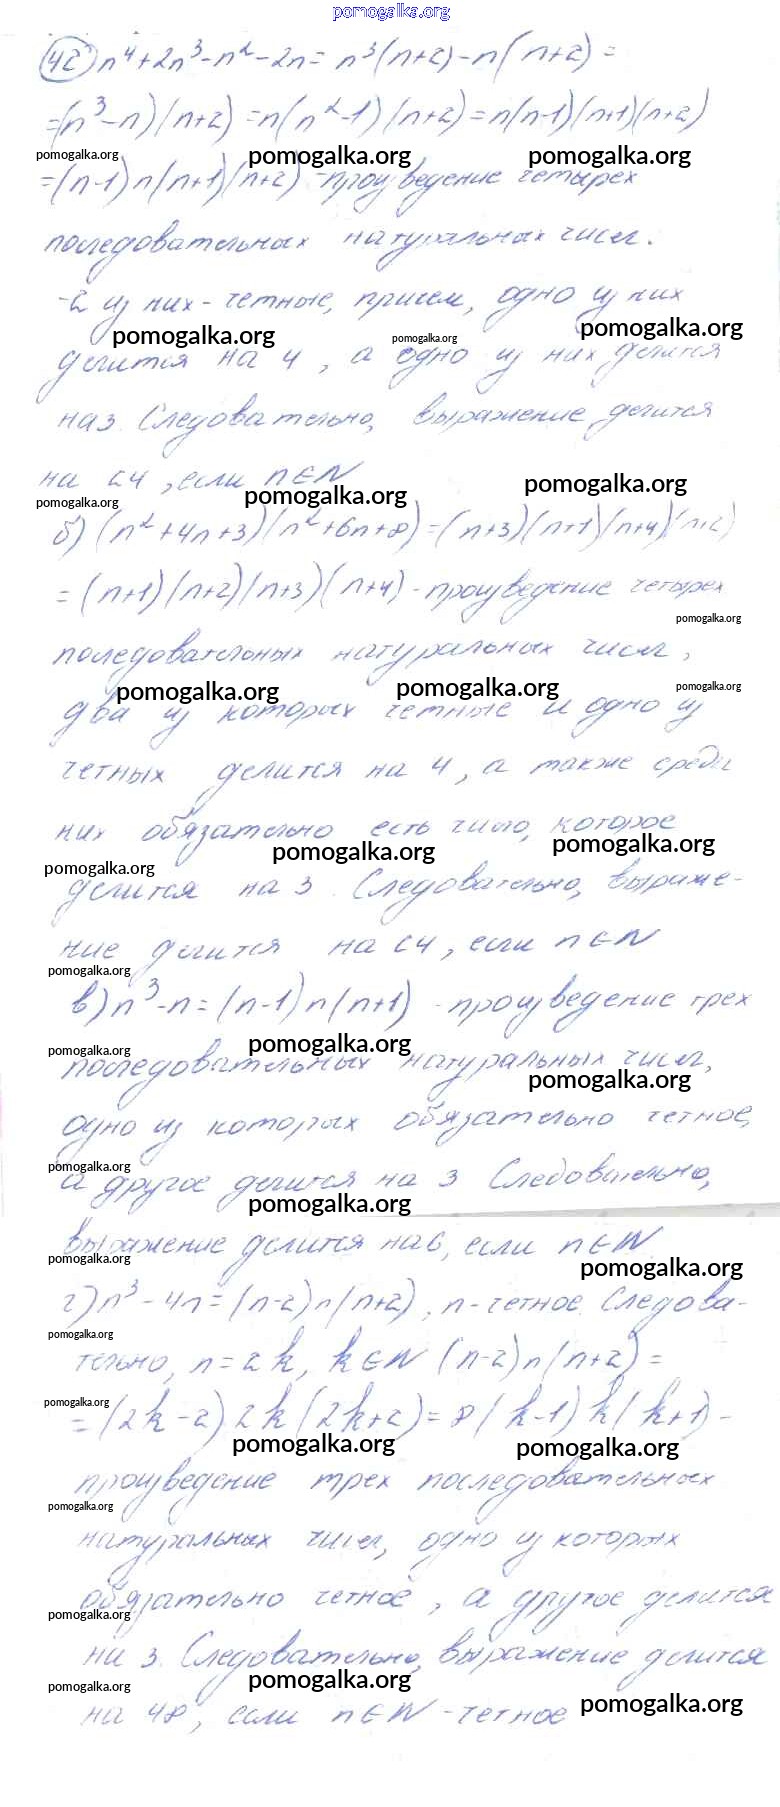 pomogalka.org
42 n⁴+2n³-n²-2n = n³(n+2)-n(n+2)=
=(n³-n)(n+2)=n(n²-1)(n+2)=n(n-1)(n+1)(n+2)
pomogalka.org pomogalka.org pomogalka.org
=(n-1)n(n+1)(n+2) -произведение четырех
последовательных натуральных чисел.
-2 из них - четные, причем, одно из них
pomogalka.org pomogalka.org pomogalka.org
делится на 4, а одно из них делится
на 3. Следовательно, выражение делится
на 24, если n∈N
pomogalka.org pomogalka.org pomogalka.org
б) (n²+4n+3)(n²+6n+8)=(n+3)(n+1)(n+4)(n+2)
=(n+1)(n+2)(n+3)(n+4) - произведение четырех
pomogalka.org
последовательных натуральных чисел,
pomogalka.org pomogalka.org pomogalka.org
два из которых четные и одно из
четных делится на 4, а также среди
них обязательно есть число, которое
pomogalka.org pomogalka.org pomogalka.org
делится на 3. Следовательно, выраже-
ние делится на 24, если n∈N
pomogalka.org
в) n³-n=(n-1)n(n+1) -произведение трех
pomogalka.org pomogalka.org pomogalka.org
последовательных натуральных чисел,
одно из которых обязательно четное,
pomogalka.org
а другое делится на 3 Следовательно,
pomogalka.org
выражение делится на 6, если n∈N
pomogalka.org pomogalka.org
г) n³-4n=(n-2)n(n+2), n-четное. Следова-
pomogalka.org
тельно, n=2k, k∈N (n-2)n(n+2)=
pomogalka.org
=(2k-2)2k(2k+2)=8(k-1)k(k+1)-
pomogalka.org pomogalka.org
произведение трех последовательных
pomogalka.org
натуральных чисел, одно из которых
обязательно четное, а другое делится
pomogalka.org
на 3. Следовательно, выражение делится
pomogalka.org pomogalka.org pomogalka.org
на 48, если n∈N -четное